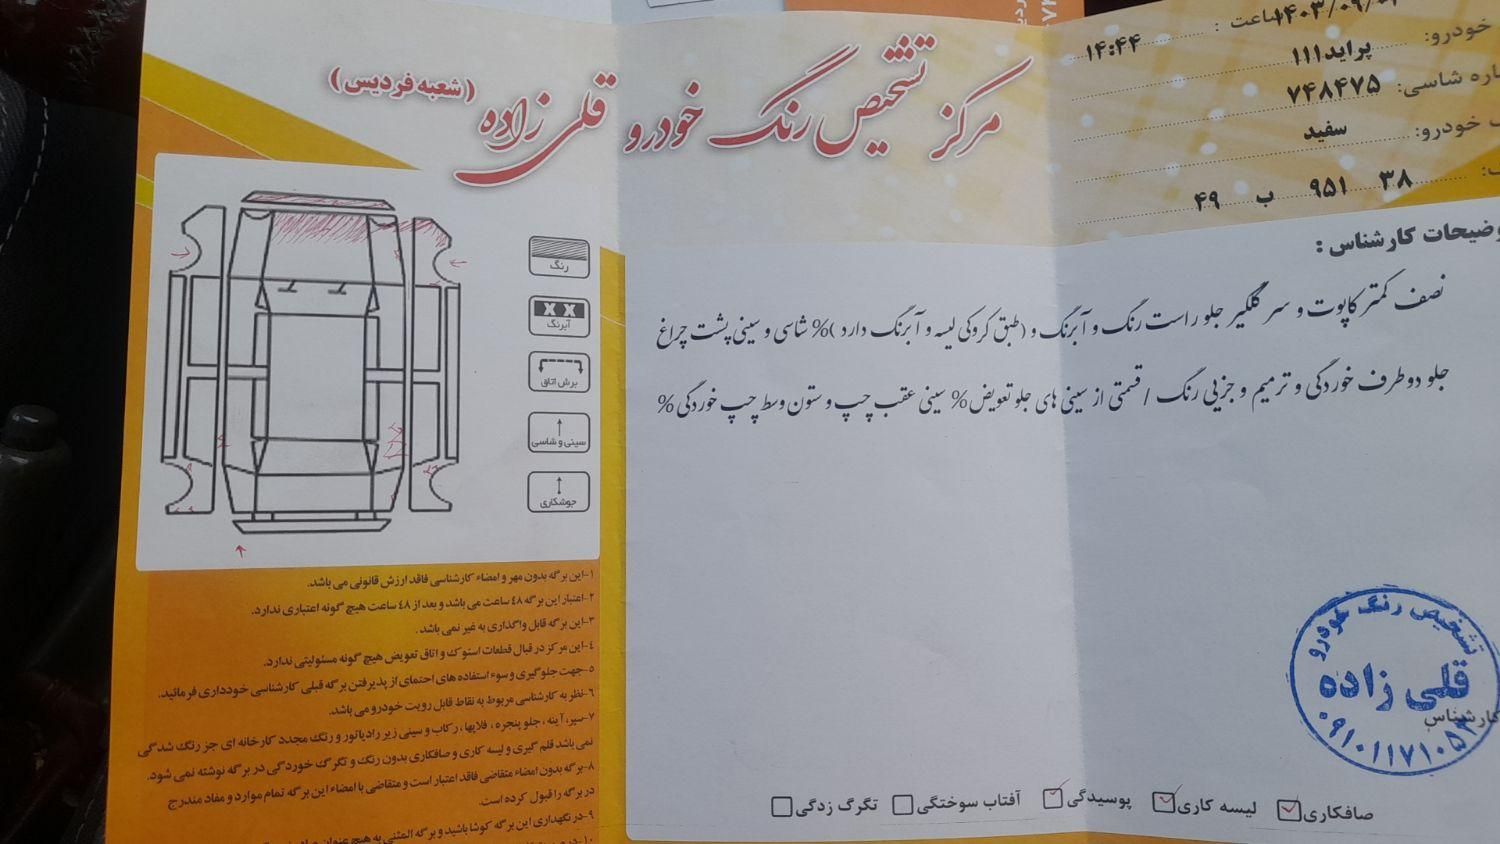 مرکز تشخیص رنگ خودرو قلی زاده (شعبه فردیس)
ساعت : ۱۴:۴۴
خودرو: پراید۱۱۱
شاسی: ۷۴۸۴۷۵
خودرو: سفید
۳۸ ۹۵۱ ب ۴۹
رنگ
آبرنگ
برش اتاق
سینی و شاسی
جوشکاری
کارشناس :
نصف کمتر کاپوت و سر گلگیر جلو راست رنگ و آبرنگ و (طبق کروکی لیسه و آبرنگ دارد )% شاسی و سینی پشت چراغ
جلو دو طرف خوردگی و ترمیم و جزیی رنگ / قسمتی از سینی های جلو تعویض % سینی عقب چپ و ستون وسط چپ خوردگی %
۱-این برگه بدون مهر و امضاء کارشناسی فاقد ارزش قانونی می باشد.
۲-اعتبار این برگه ۴۸ ساعت می باشد و بعد از ۴۸ ساعت هیچ گونه اعتباری ندارد.
۳-این برگه قابل واگذاری به غیر نمی باشد.
۴-این مرکز در قبال قطعات استوک و اتاق تعویض هیچ گونه مسئولیتی ندارد.
۵-جهت جلوگیری و سوء استفاده های احتمای از پذیرفتن برگه قبلی کارشناسی خودداری فرمائید.
۶-نظر به کارشناسی مربوط به نقاط قابل رویت خودرو می باشد.
۷-سپر، آینه ، جلو پنجره ، فلاپها ، رکاب و سینی زیر رادیاتور و رنگ مجدد کارخانه ای جز رنگ شدگی
نمی باشد قلم گیری و لیسه کاری و صافکاری بدون رنگ و تگرگ خوردگی در برگه نوشته نمی شود.
۸-برگه بدون امضاء متقاضی فاقد اعتبار است و متقاضی با امضاء این برگه تمام موارد و مفاد مندرج
در برگه را قبول کرده است.
۹-در نگهداری این برگه کوشا باشید و برگه المثنی به هیچ عنوان
تشخیص رنگ خودرو
قلی زاده
کارشناس
صافکاری لیسه کاری پوسیدگی آفتاب سوختگی تگرگ زدگی